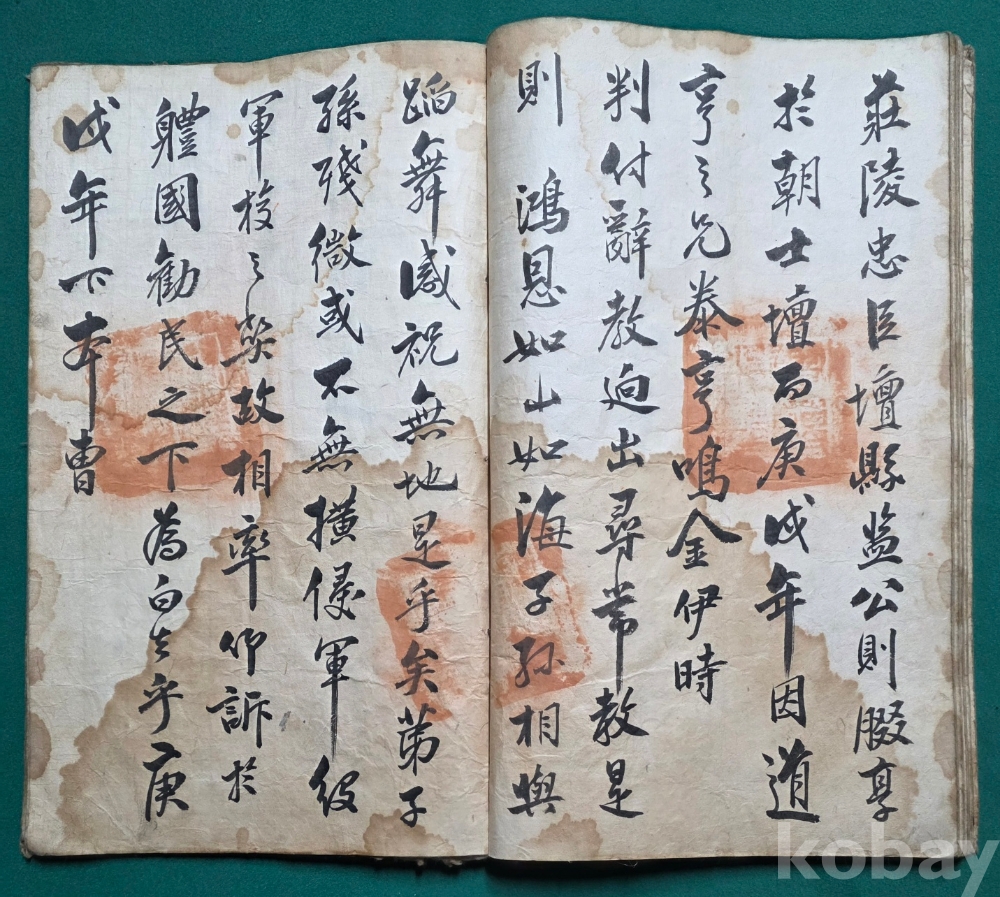 莊陵忠臣壇縣監公則腏享
於朝士壇而庚戌年因道
亨之兄泰亨鳴金伊時
判付辭教迥出尋常教是
則 鴻恩如山如海子孫相與
蹈舞感祝無地是乎矣第子
孫殘微或不無橫侵軍役
軍校之弊故相率仰訴於
軆國勸民之下爲白去乎庚
戌年下本曹
kobay